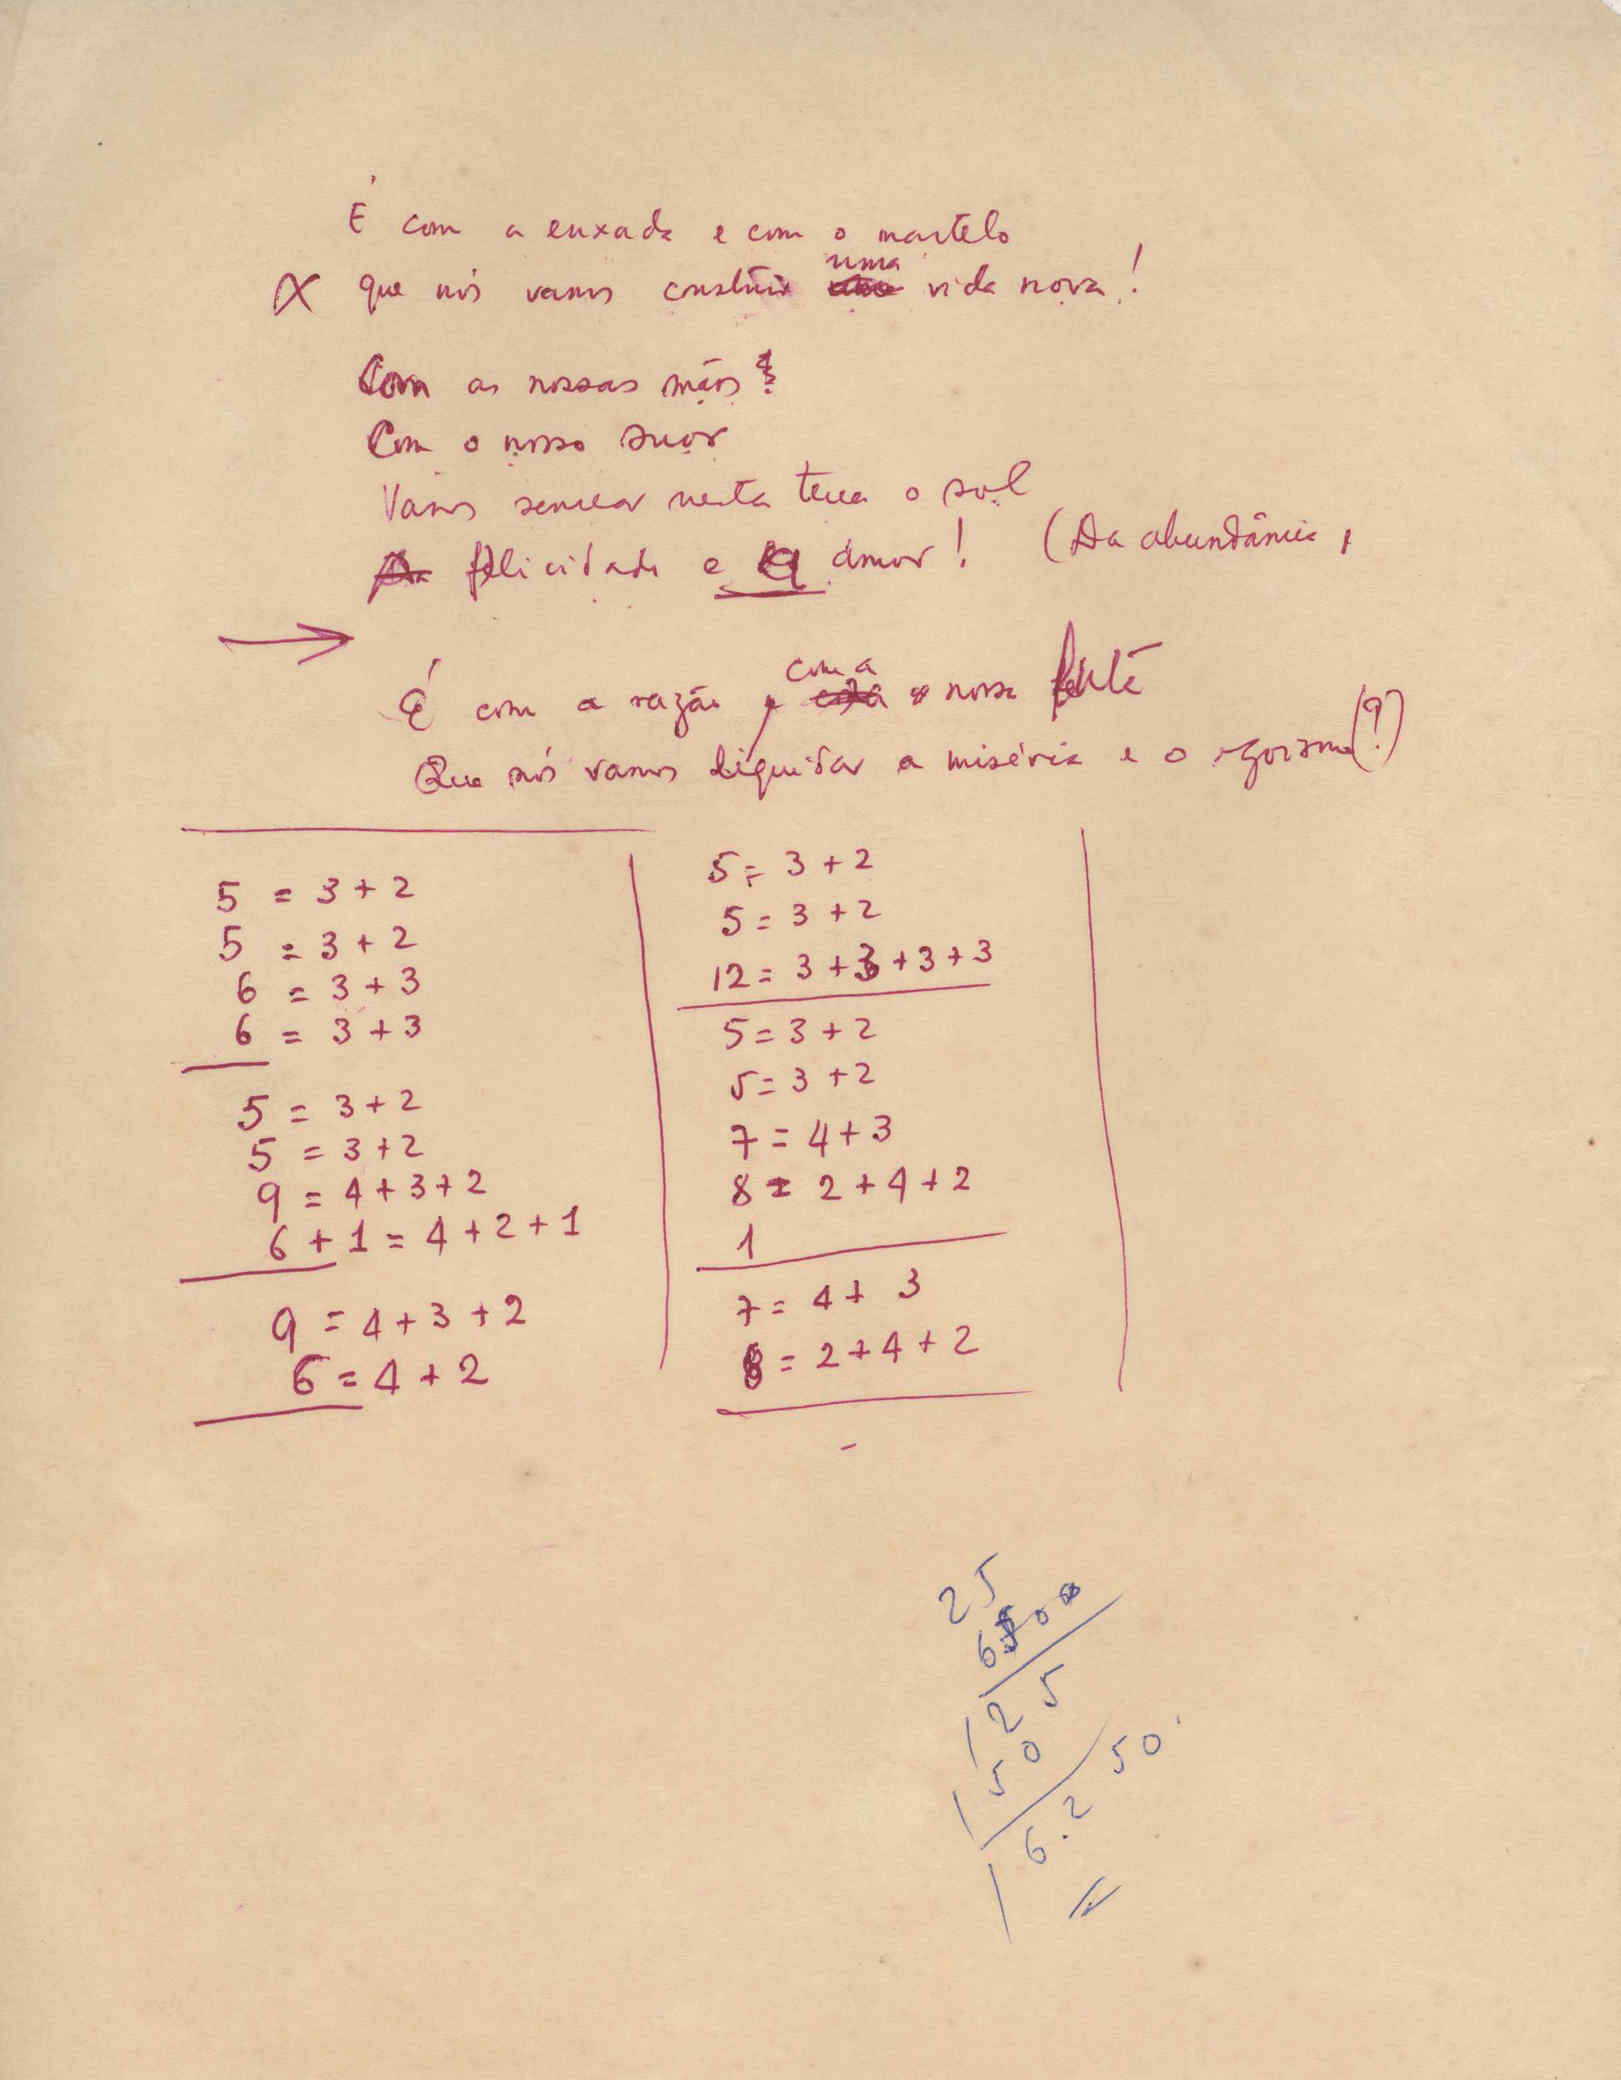 É com a enxada e com o martelo
X que nós vamos construir uma vida nova!
Com as nossas mãos
Com o nosso suor
Vamos semear nesta terra o sol
felicidade e amor! (Da abundância,
É com a razão e com a nossa
Que nós vamos liquidar a miséria e o egoismo(?!)
5 = 3 + 2
5 = 3 + 2
6 = 3 + 3
6 = 3 + 3
5 = 3 + 2
5 = 3 + 2
9 = 4 + 3 + 2
6 + 1 = 4 + 2 + 1
9 = 4 + 3 + 2
6 = 4 + 2
5 = 3 + 2
5 = 3 + 2
12 = 3 + 3 + 3 + 3
5 = 3 + 2
5 = 3 + 2
7 = 4 + 3
8 = 2 + 4 + 2
1
7 = 4 + 3
8 = 2 + 4 + 2
25
125
150
6.250